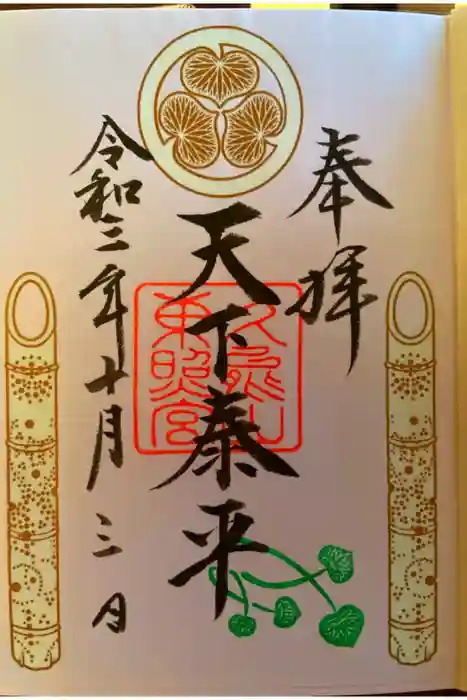 奉拝
天下泰平
久能山
東照宮
令和二年十月三日